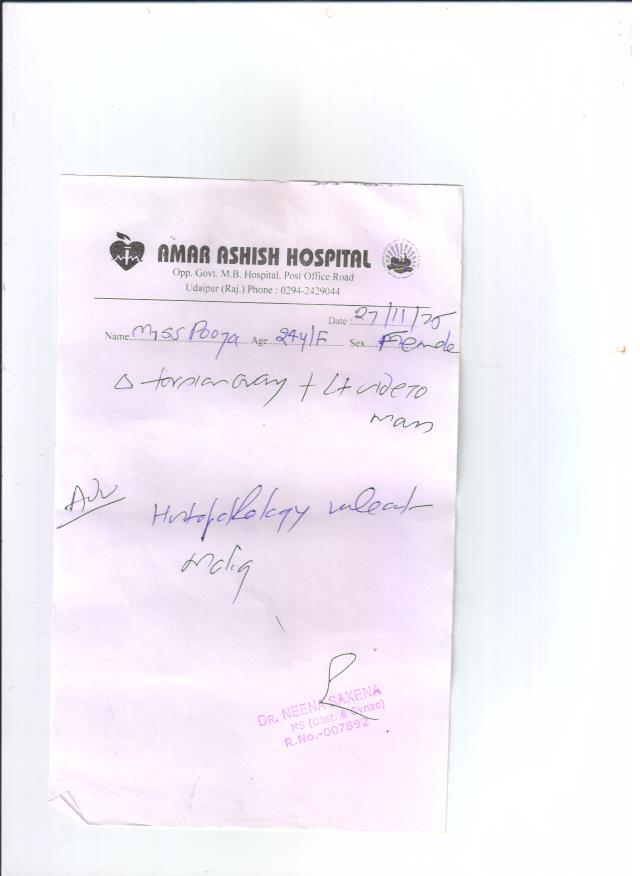 AMAR ASHISH HOSPITAL
Opp. Govt. M.B. Hospital, Post Office Road
Udaipur (Raj.) Phone : 0294-2429044
Date : 27/11/25
Name Miss Pooja Age 24y/F Sex Female
Δ torsion ovary + Lt
mass
Adv
Histopathology
malig
DR. NEENA SAXENA
MS (Obst. & Gynae)
R.No.-007892